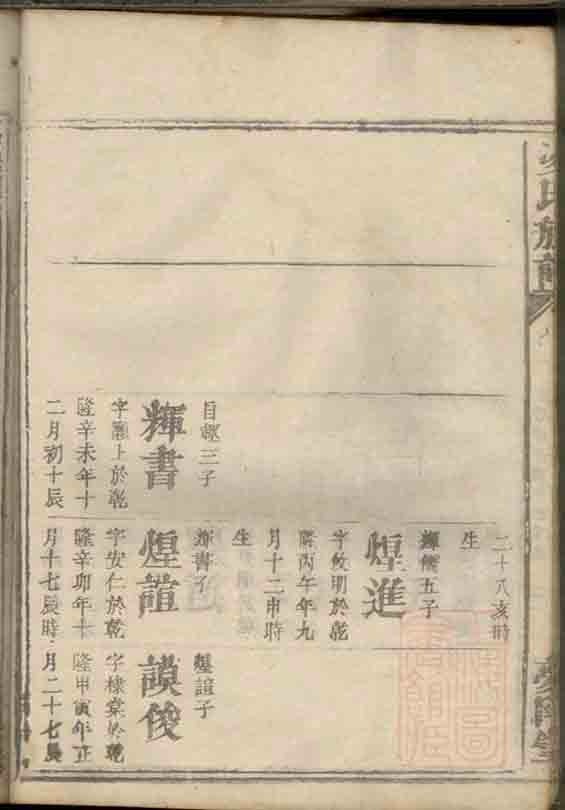 氏族譜
二十八亥時
生
輝儐五子
煌進
字攸明於乾
隆丙午年九
月十二申時
生
目輕三子
輝書
字 上於乾
隆辛未年十
二月初十辰
輝書子
煌誼
字安仁於乾
隆辛卯年十
月十七辰時
煌誼子
謨俊
字棣棠於乾
隆甲寅年正
月二十七辰